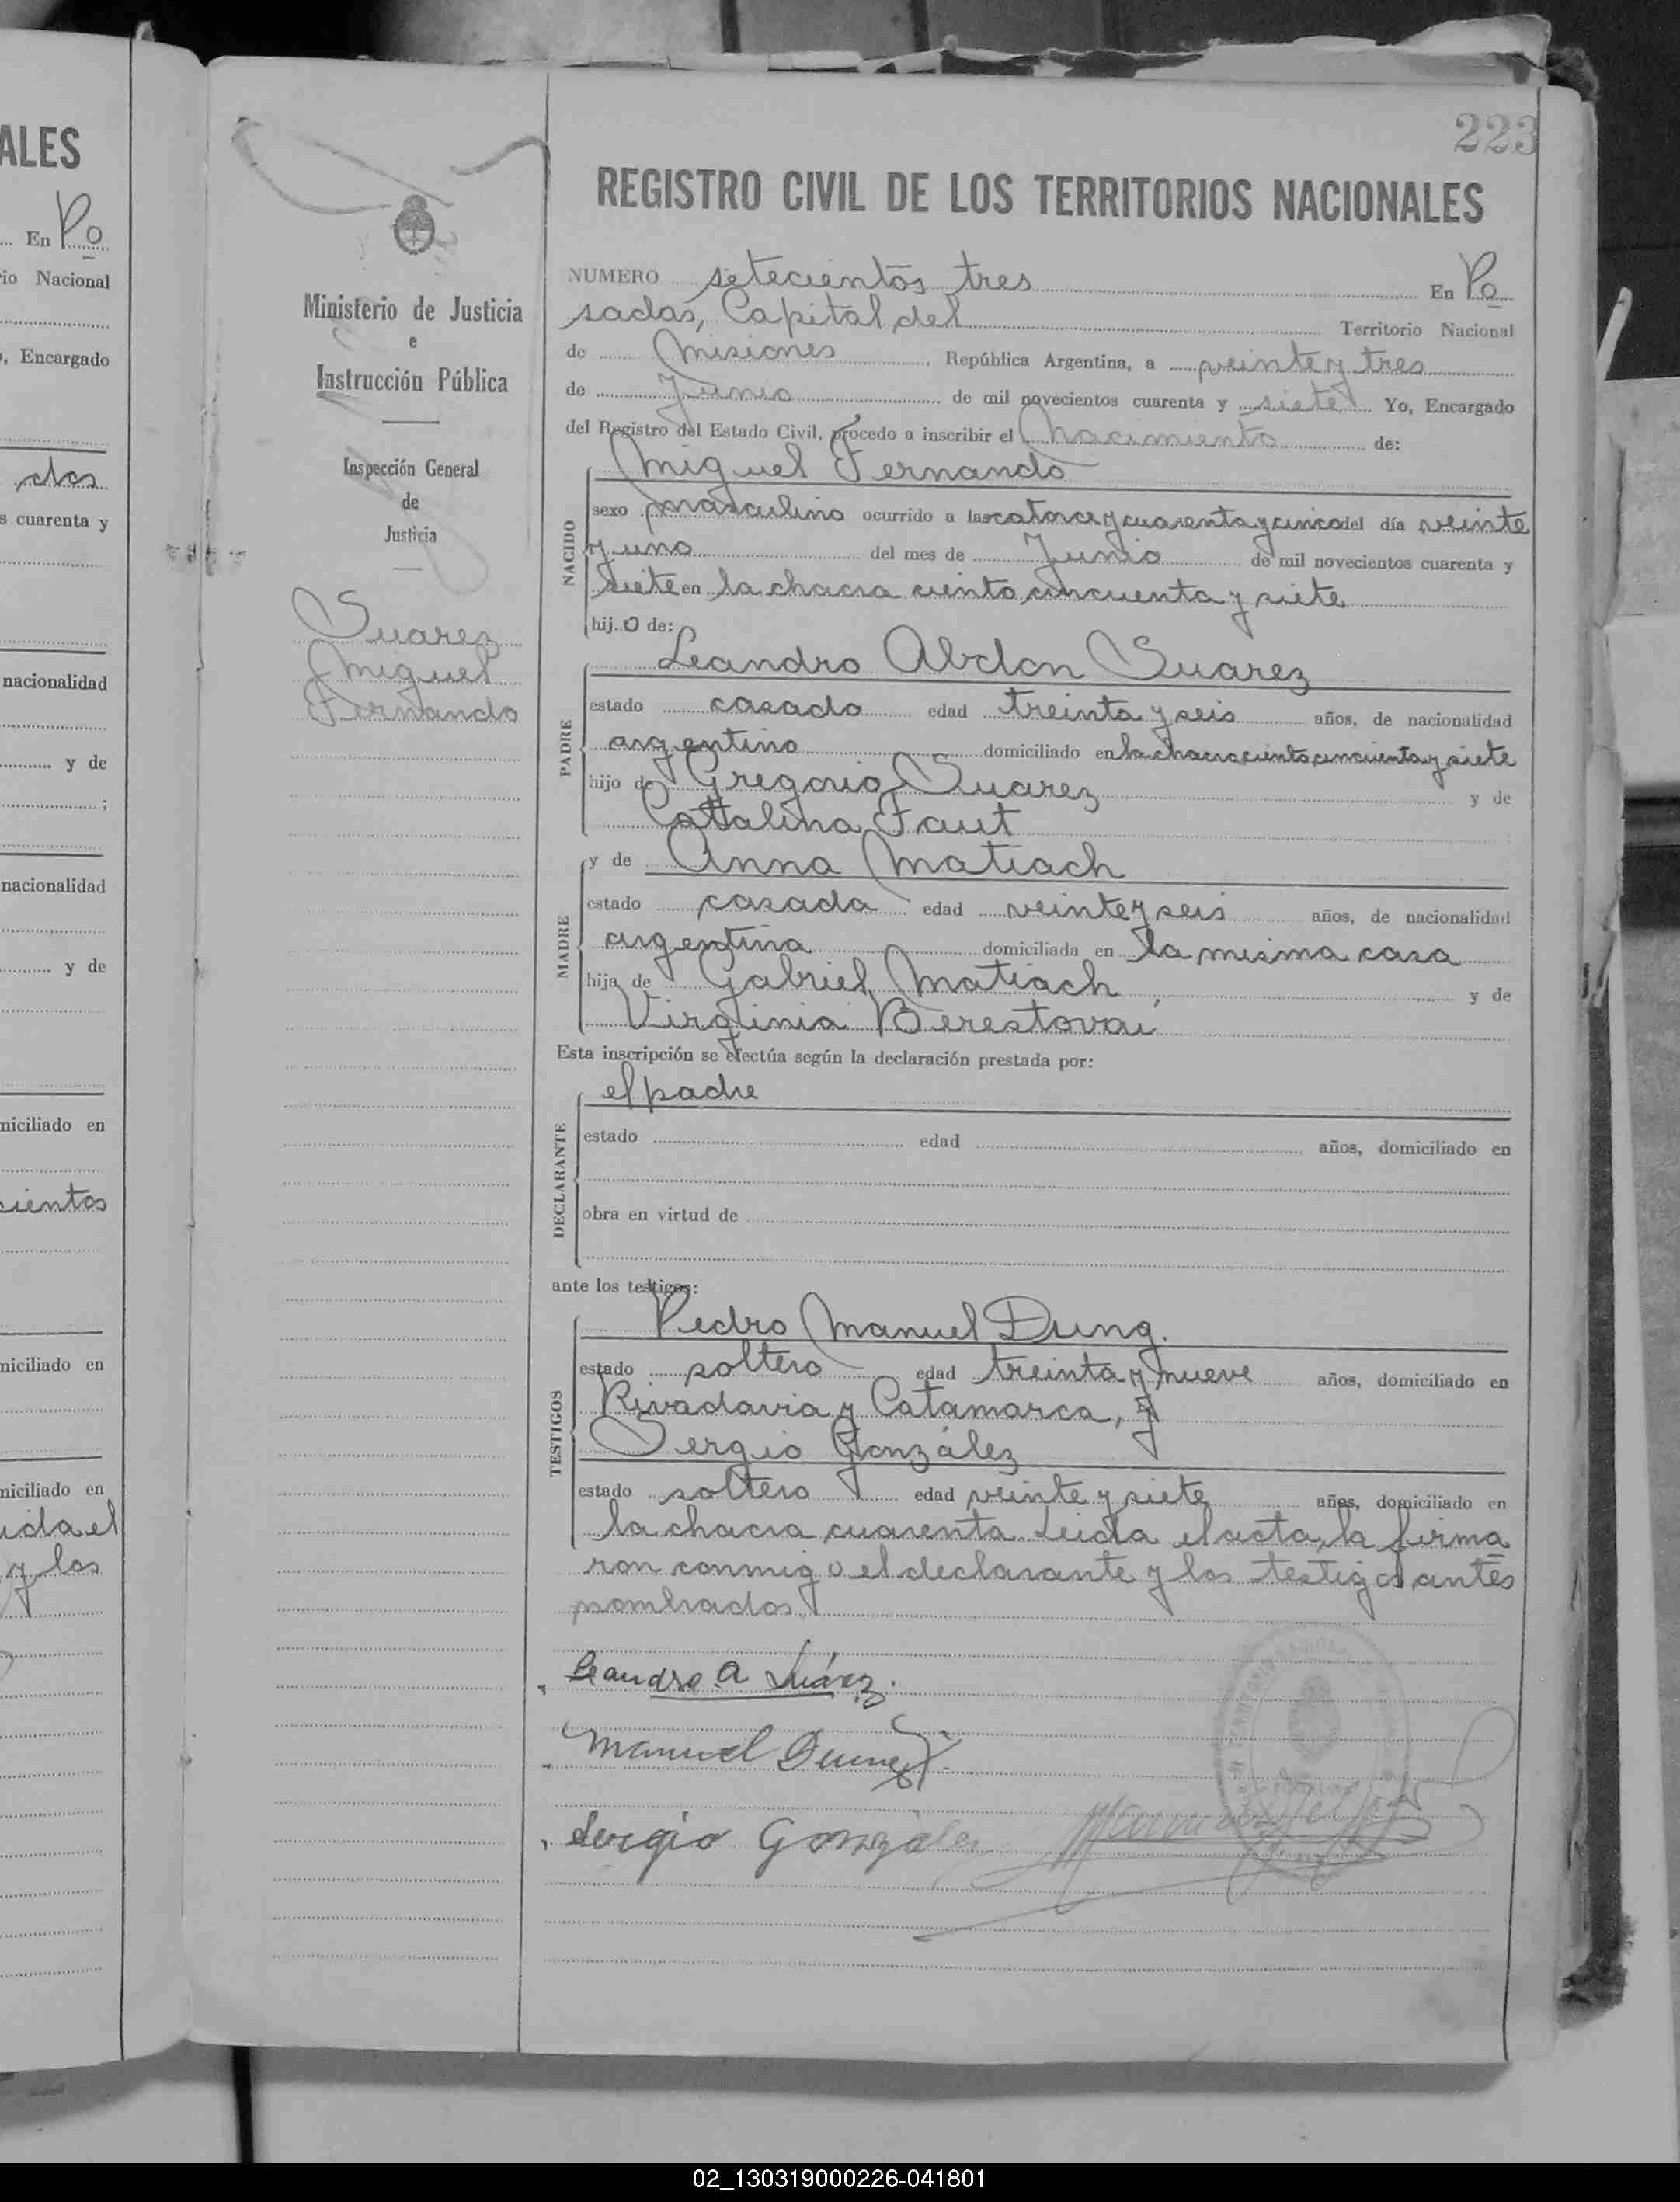 223
REGISTRO CIVIL DE LOS TERRITORIOS NACIONALES
NUMERO setecientos tres En Po
sadas, Capital del Territorio Nacional
de Misiones, República Argentina, a veinte y tres
de Junio de mil novecientos cuarenta y siete Yo, Encargado
del Registro del Estado Civil, procedo a inscribir el Nacimiento de:
Miguel Fernando
NACIDO
sexo masculino ocurrido a las catorce y cuarenta y cinco del día veinte
y uno del mes de Junio de mil novecientos cuarenta y
siete en la chacra ciento cincuenta y siete
hijo de:
Leandro Abdon Suarez
PADRE
estado casado edad treinta y seis años, de nacionalidad
argentino domiciliado en la chacra ciento cincuenta y siete
hijo de Gregorio Suarez y de
Cattalina Faut
y de Anna Matiach
MADRE
estado casada edad veinte y seis años, de nacionalidad
argentina domiciliada en la misma casa
hija de Gabriel Matiach, y de
Virginia Berestovai
Esta inscripción se efectúa según la declaración prestada por:
el padre
DECLARANTE
estado edad años, domiciliado en
obra en virtud de
ante los testigos:
Pedro Manuel Dung.
TESTIGOS
estado soltero edad treinta y nueve años, domiciliado en
Rivadavia y Catamarca, y
Sergio González
estado soltero edad veinte y siete años, domiciliado en
la chacra cuarenta. Leida el acta, la firma
ron conmigo el declarante y los testigos antes
nombrados.
Leandro A Suárez.
Manuel
Sergio González
Ministerio de Justicia
e
Instrucción Pública
Inspección General
de
Justicia
Suarez
Miguel
Fernando
ALES
En Po
rio Nacional
, Encargado
dos
s cuarenta y
nacionalidad
y de
;
nacionalidad
y de
miciliado en
cientos
miciliado en
miciliado en
ida el
y los
02_130319000226-041801